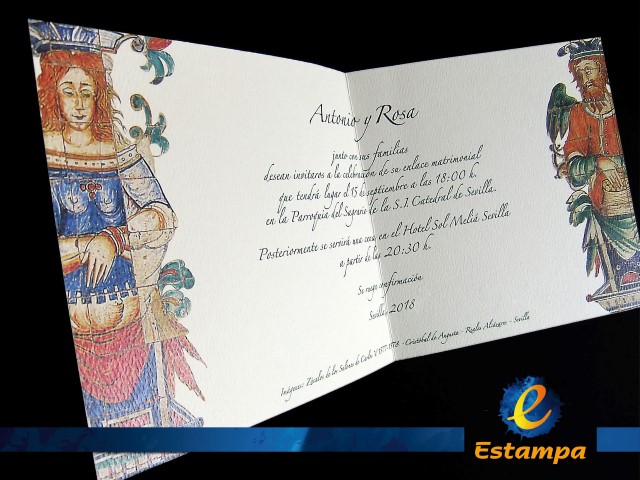 Antonio y Rosa
junto con sus familias
desean invitaros a la celebración de su enlace matrimonial
que tendrá lugar el 15 de septiembre a las 18:00 h.
en la Parroquia del Sagrario de la S.I. Catedral de Sevilla.
Posteriormente se servirá una cena en el Hotel Sol Meliá Sevilla
a partir de las 20:30 h.
Se ruega confirmación
Sevilla, 2018
Imágenes: Zócalos de los Salones de Carlos V 1577-1578 - Cristóbal de Augusta - Reales Alcázares - Sevilla
e
Estampa